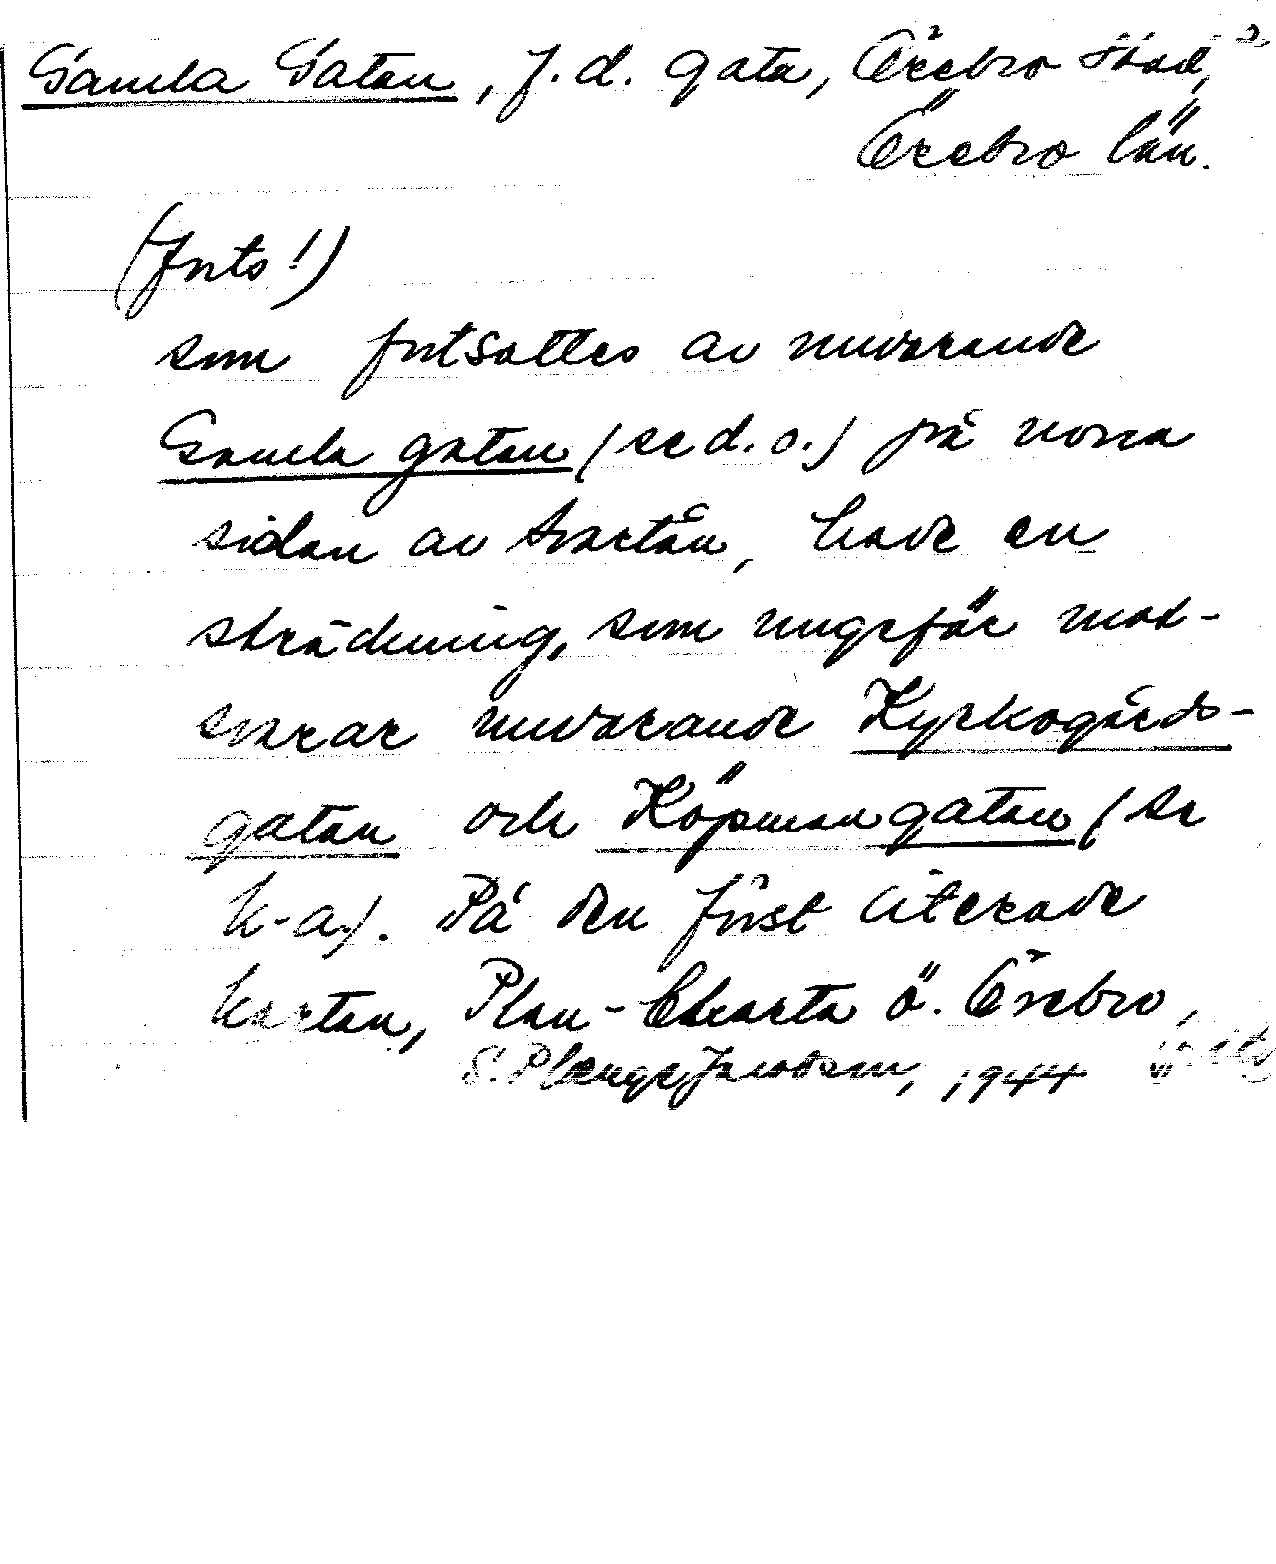 Gamla Gatan, f.d. gata, Örebro stad, 2
Örebro län.
(forts!)
som fortsattes av nuvarande
Gamla gatan (se d.o.) på norra
sidan av Svartån, hade en
sträckning, som ungefär mot-
svarar nuvarande Kyrkogårds-
gatan och Köpmangatan (se
k-a). På den först citerade
kartan, Plan-Charta ö. Örebro,
S. Plenge Jacobson, 1944